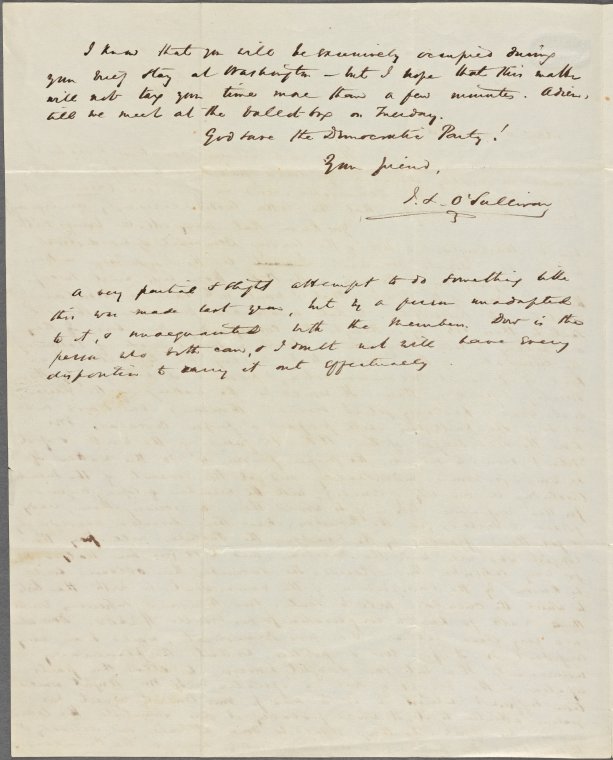 I know that you will be excessively occupied during
your brief stay at Washington – but I hope that this matter
will not tax your time more than a few minutes. Adieu,
till we meet at the ballot box on Tuesday.
God save the Democratic Party!
Your friend,
J. L. O'Sullivan
A very partial & slight attempt to do something like
this was made last year, but by a person unadapted
to it, & unacquainted with the Members. Dow is the
person who both can, & I doubt not will have every
disposition to carry it out effectually